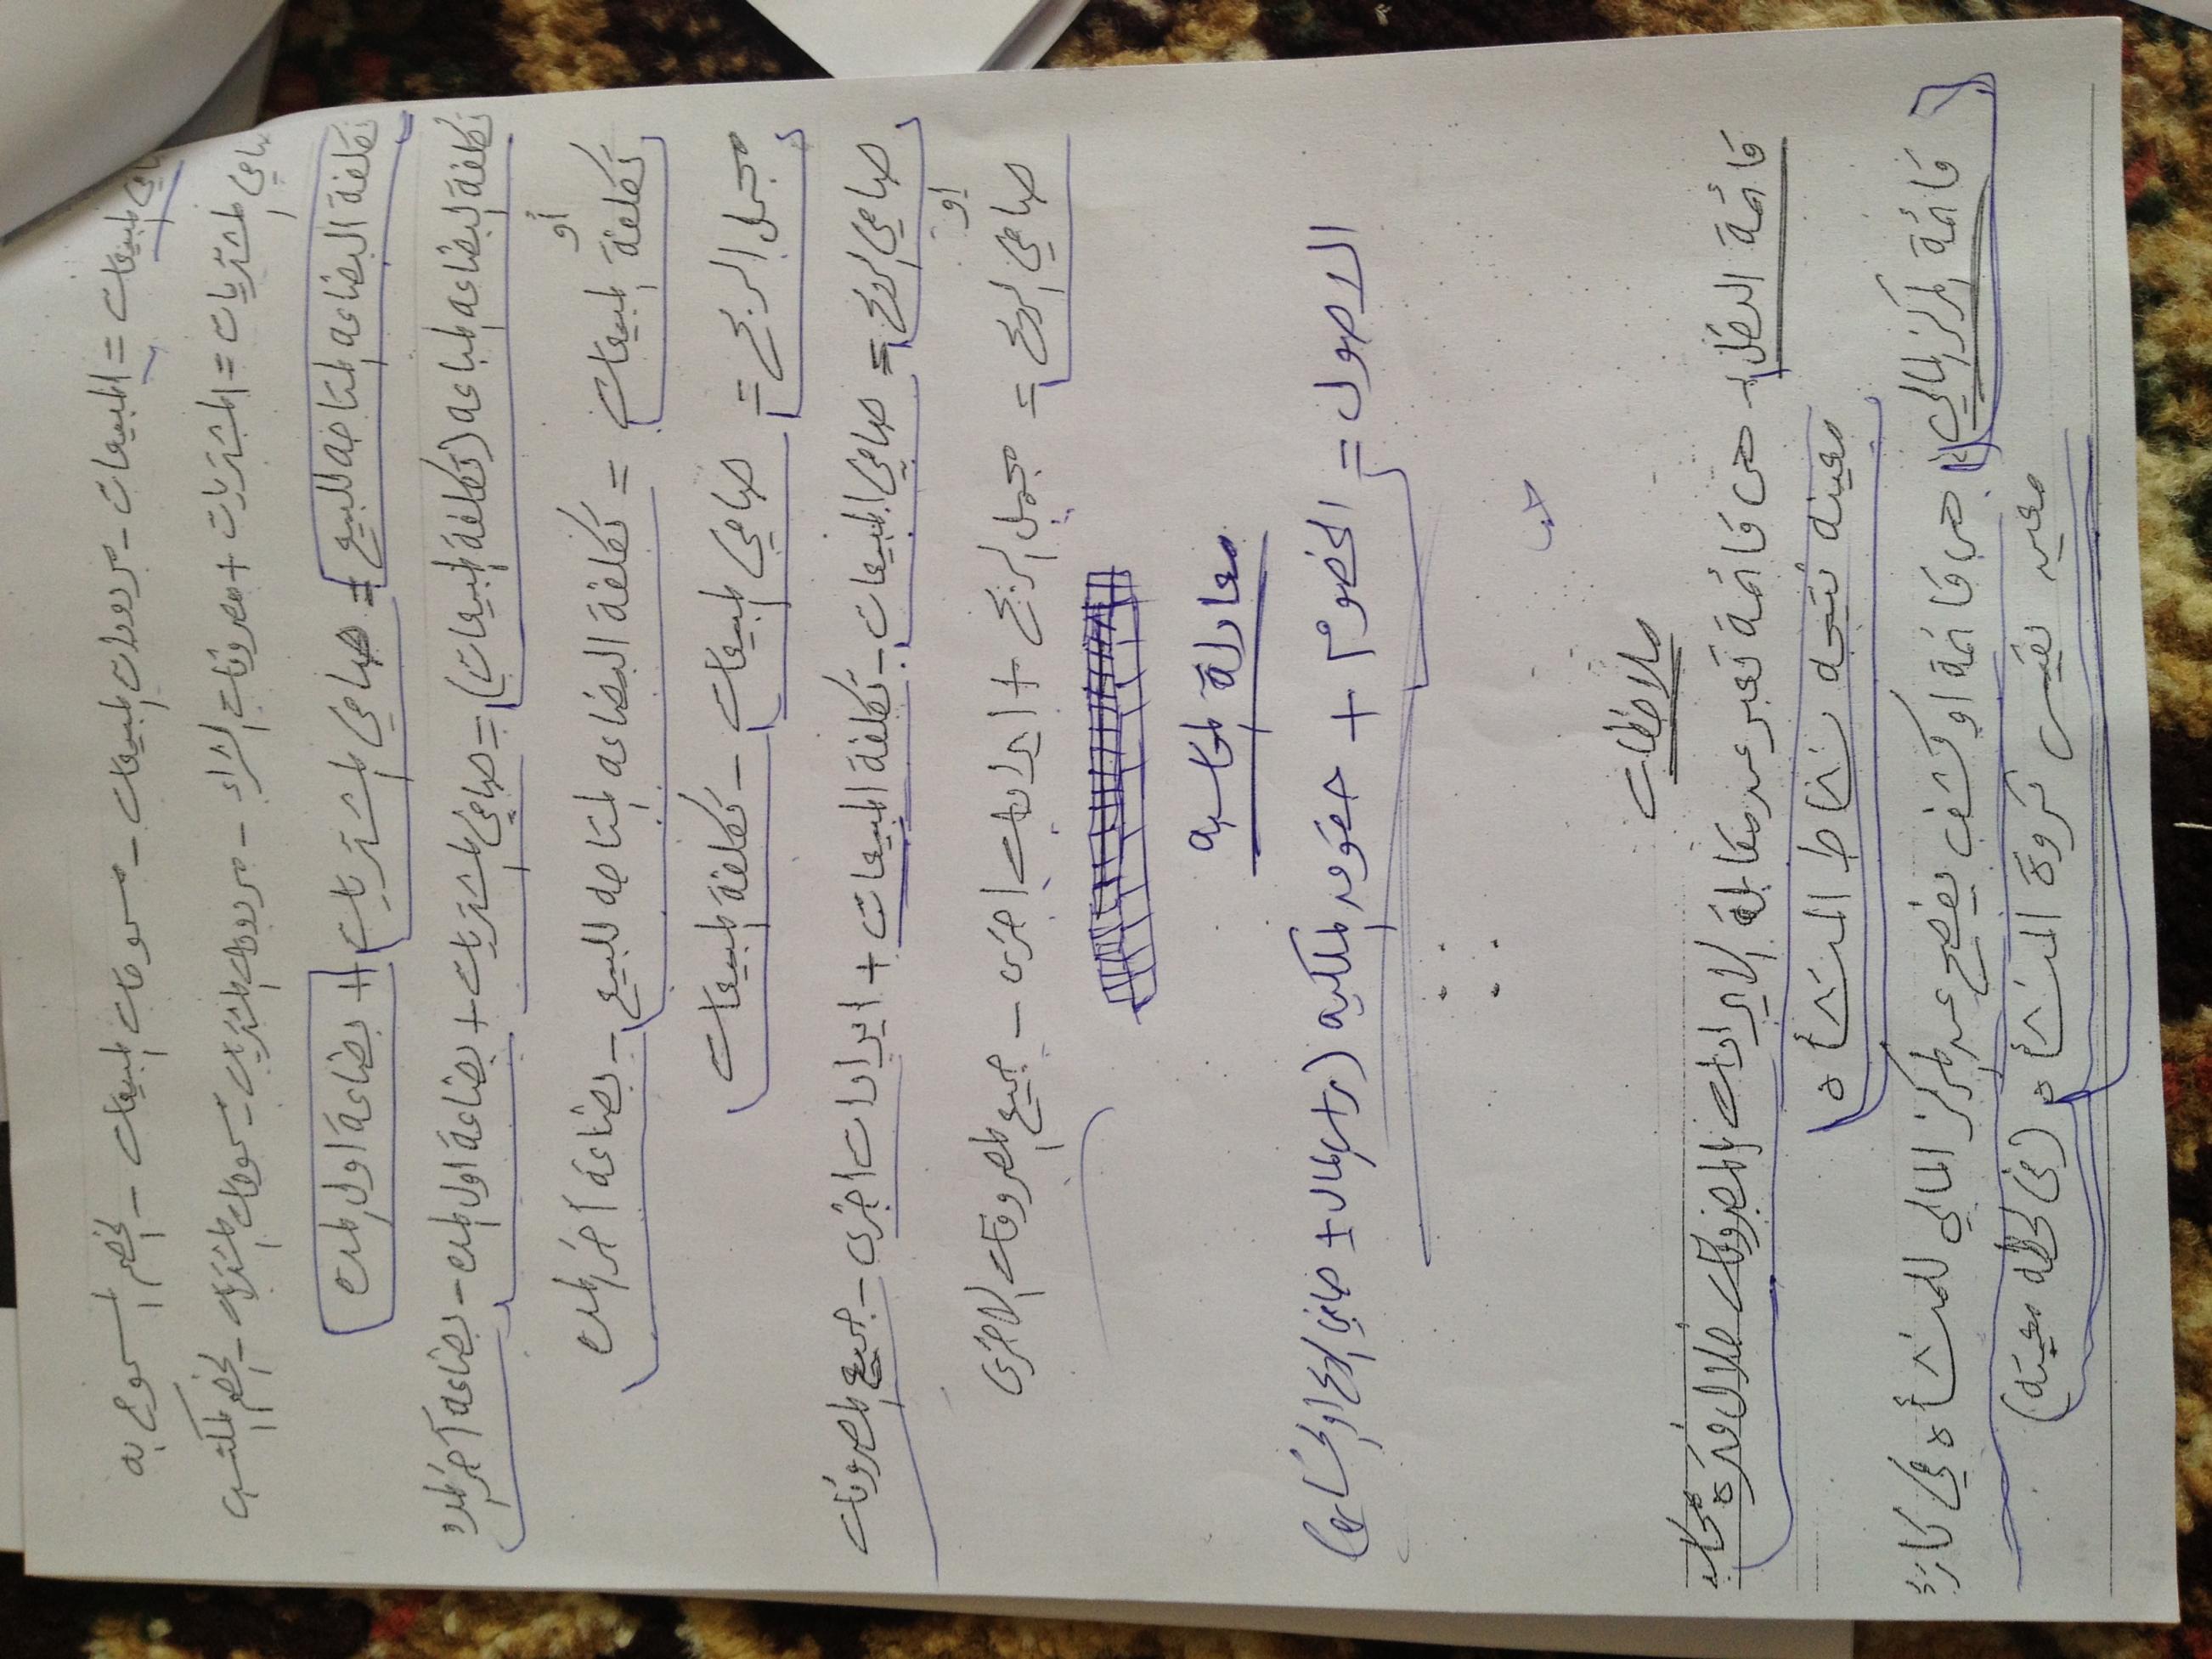 صافي المبيعات = المبيعات - مردودات المبيعات - مسموحات المبيعات - الخصم المسموح به
صافي المشتريات = المشتريات + مصروفات الشراء - مردودات المشتريات - مسموحات المشتريات - الخصم المكتسب
تكلفة البضاعه المتاحه للبيع = صافي المشتريات + بضاعة اول المده
تكلفة البضاعه المباعه (تكلفة المبيعات) = صافي المشتريات + بضاعة اول المده - بضاعة آخر المده
أو
تكلفة المبيعات = تكلفة البضاعه المتاحه للبيع - بضاعة آخر المده
مجمل الربح = صافي المبيعات - تكلفة المبيعات
صافي الربح = صافي المبيعات - تكلفة المبيعات + ايرادات اخرى - جميع المصروفات
او
صافي الربح = مجمل الربح + ايرادات اخرى - جميع المصروفات الاخرى
معادلة المحاسبه
الاصول = الخصوم + حقوق الملكيه (رأس المال ± صافي الربح او الخساره)
ملاحظات
قائمة الدخل :- هى قائمة تعبر عن مقابلة الايرادات بالمصروفات خلال فتره محاسبيه
معينه نتيجه نشاط المنشأه
قائمة المركز المالي :- هى قائمة او كشف يفصح عن المركز المالي للمنشأه في تاريخ
معين تقيس ثروة المنشأه (فى لحظه معينه)